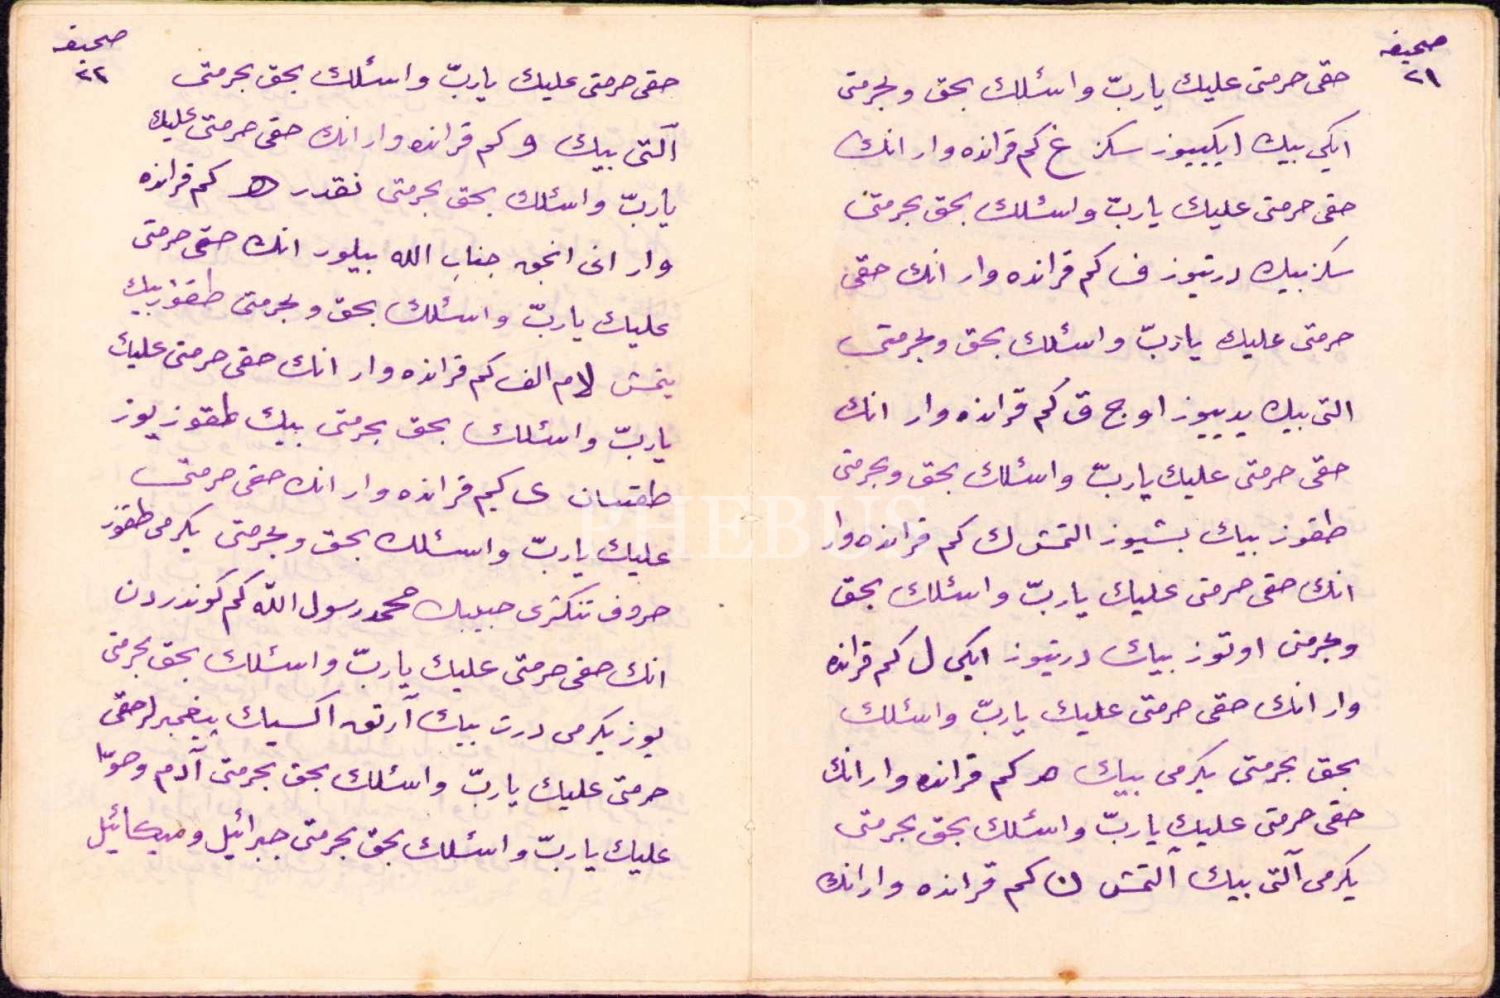 صحيفه
٢١
حقى حرمتى عليك يا ربّ واسئلك بحق وبحرمتى
ايكى بيك ايكييوز سكز غ كم قرانده وار انك
حقى حرمتى عليك يا ربّ واسئلك بحق بحرمتى
سكز بيك درتيوز ف كم قرانده وار انك حقى
حرمتى عليك يا ربّ واسئلك بحق وبحرمتى
التى بيك يدييوز اوچ ق كم قرانده وار انك
حقى حرمتى عليك يا ربّ واسئلك بحق وبحرمتى
طقوز بيك بشيوز التمش ك كم قرانده وار
انك حقى حرمتى عليك يا ربّ واسئلك بحق
وبحرمتى اوتوز بيك درتيوز ايكى ل كم قرانده
وار انك حقى حرمتى عليك يا ربّ واسئلك
بحق بحرمتى يكرمى بيك م كم قرانده وار انك
حقى حرمتى عليك يا ربّ واسئلك بحق بحرمتى
يكرمى آلتى بيك آلتمش ن كم قرانده وار انك
صحيفه
٢٢
حقى حرمتى عليك يا ربّ واسئلك بحق بحرمتى
آلتى بيك و كم قرانده وار انك حقى حرمتى عليك
يا ربّ واسئلك بحق بحرمتى نقدر ه كم قرانده
وار انى انجق جناب الله بيلور انك حقى حرمتى
عليك يا ربّ واسئلك بحق وبحرمتى طقوز بيك
يتمش لام الف كم قرانده وار انك حقى حرمتى عليك
يا ربّ واسئلك بحق بحرمتى بيك طقوز يوز
طقسان ى كم قرانده وار انك حقى حرمتى
عليك يا ربّ واسئلك بحق وبحرمتى يكرمى طقوز
حروف تنكرى حبيبك محمد رسول الله كم كوندردن
انك حقى حرمتى عليك يا ربّ واسئلك بحق بحرمتى
يوز يكرمى درت بيك آرتق اكسيك پيغمبرلر حقى
حرمتى عليك يا ربّ واسئلك بحق بحرمتى آدم وحوّا
عليك يا ربّ واسئلك بحق بحرمتى جبرائيل وميكائيل
PHEBUS